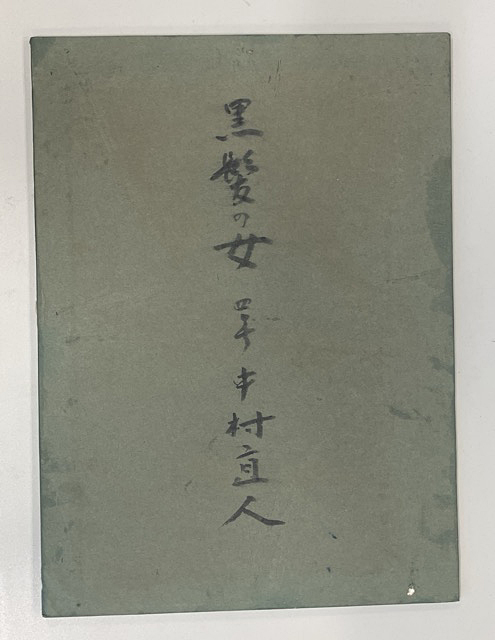 黒髪の女 四号 中村直人